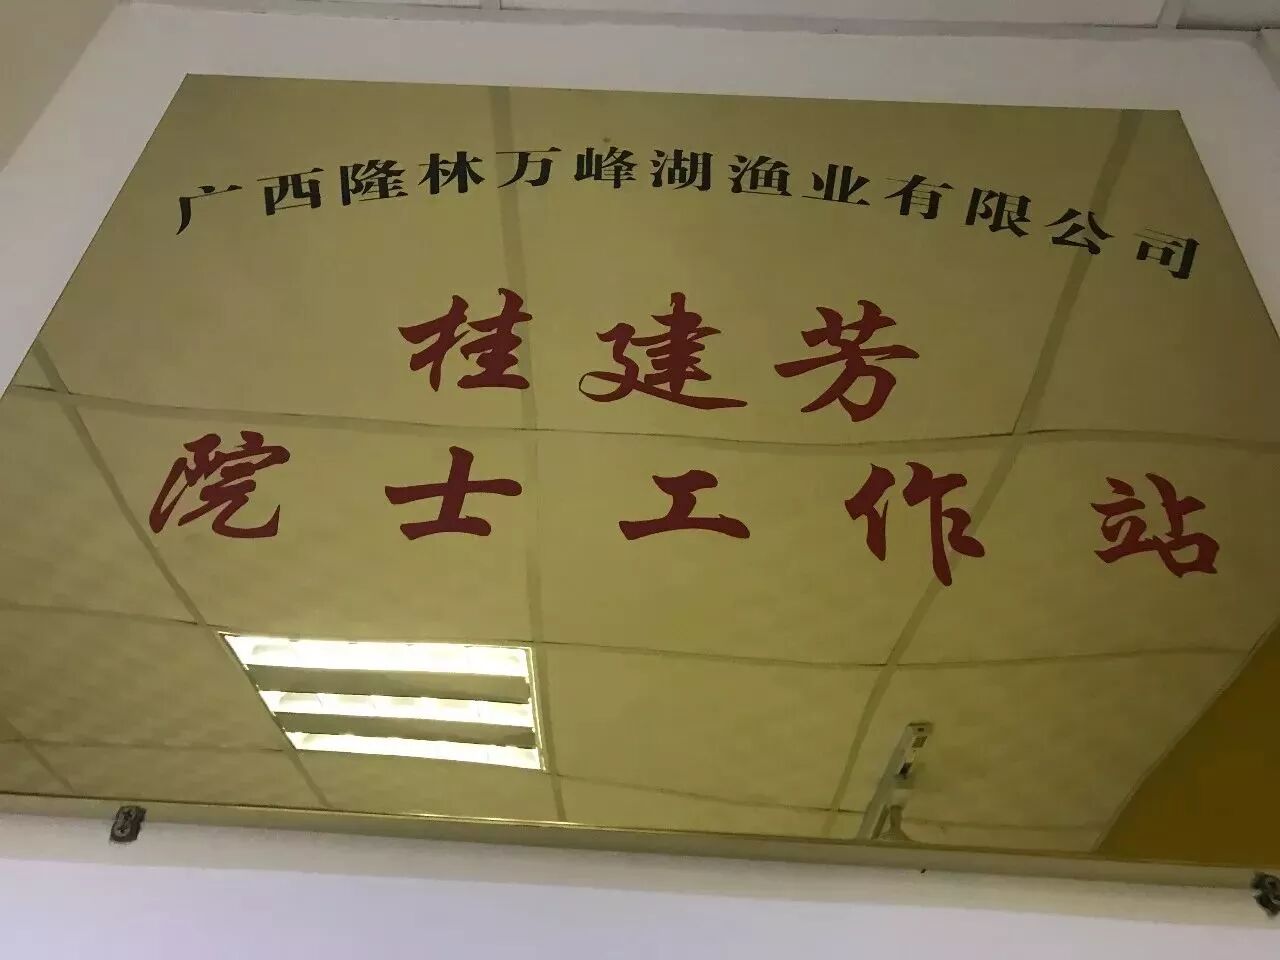 广西隆林万峰湖渔业有限公司
桂建芳
院士工作站